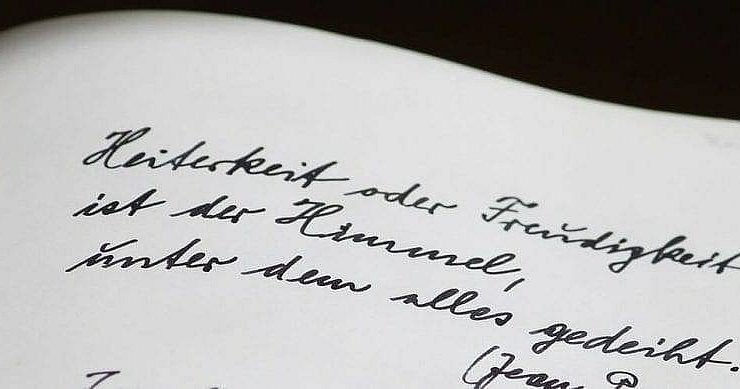 Heiterkeit oder Freudigkeit
ist der Himmel,
unter dem alles gedeiht.
(Jean P